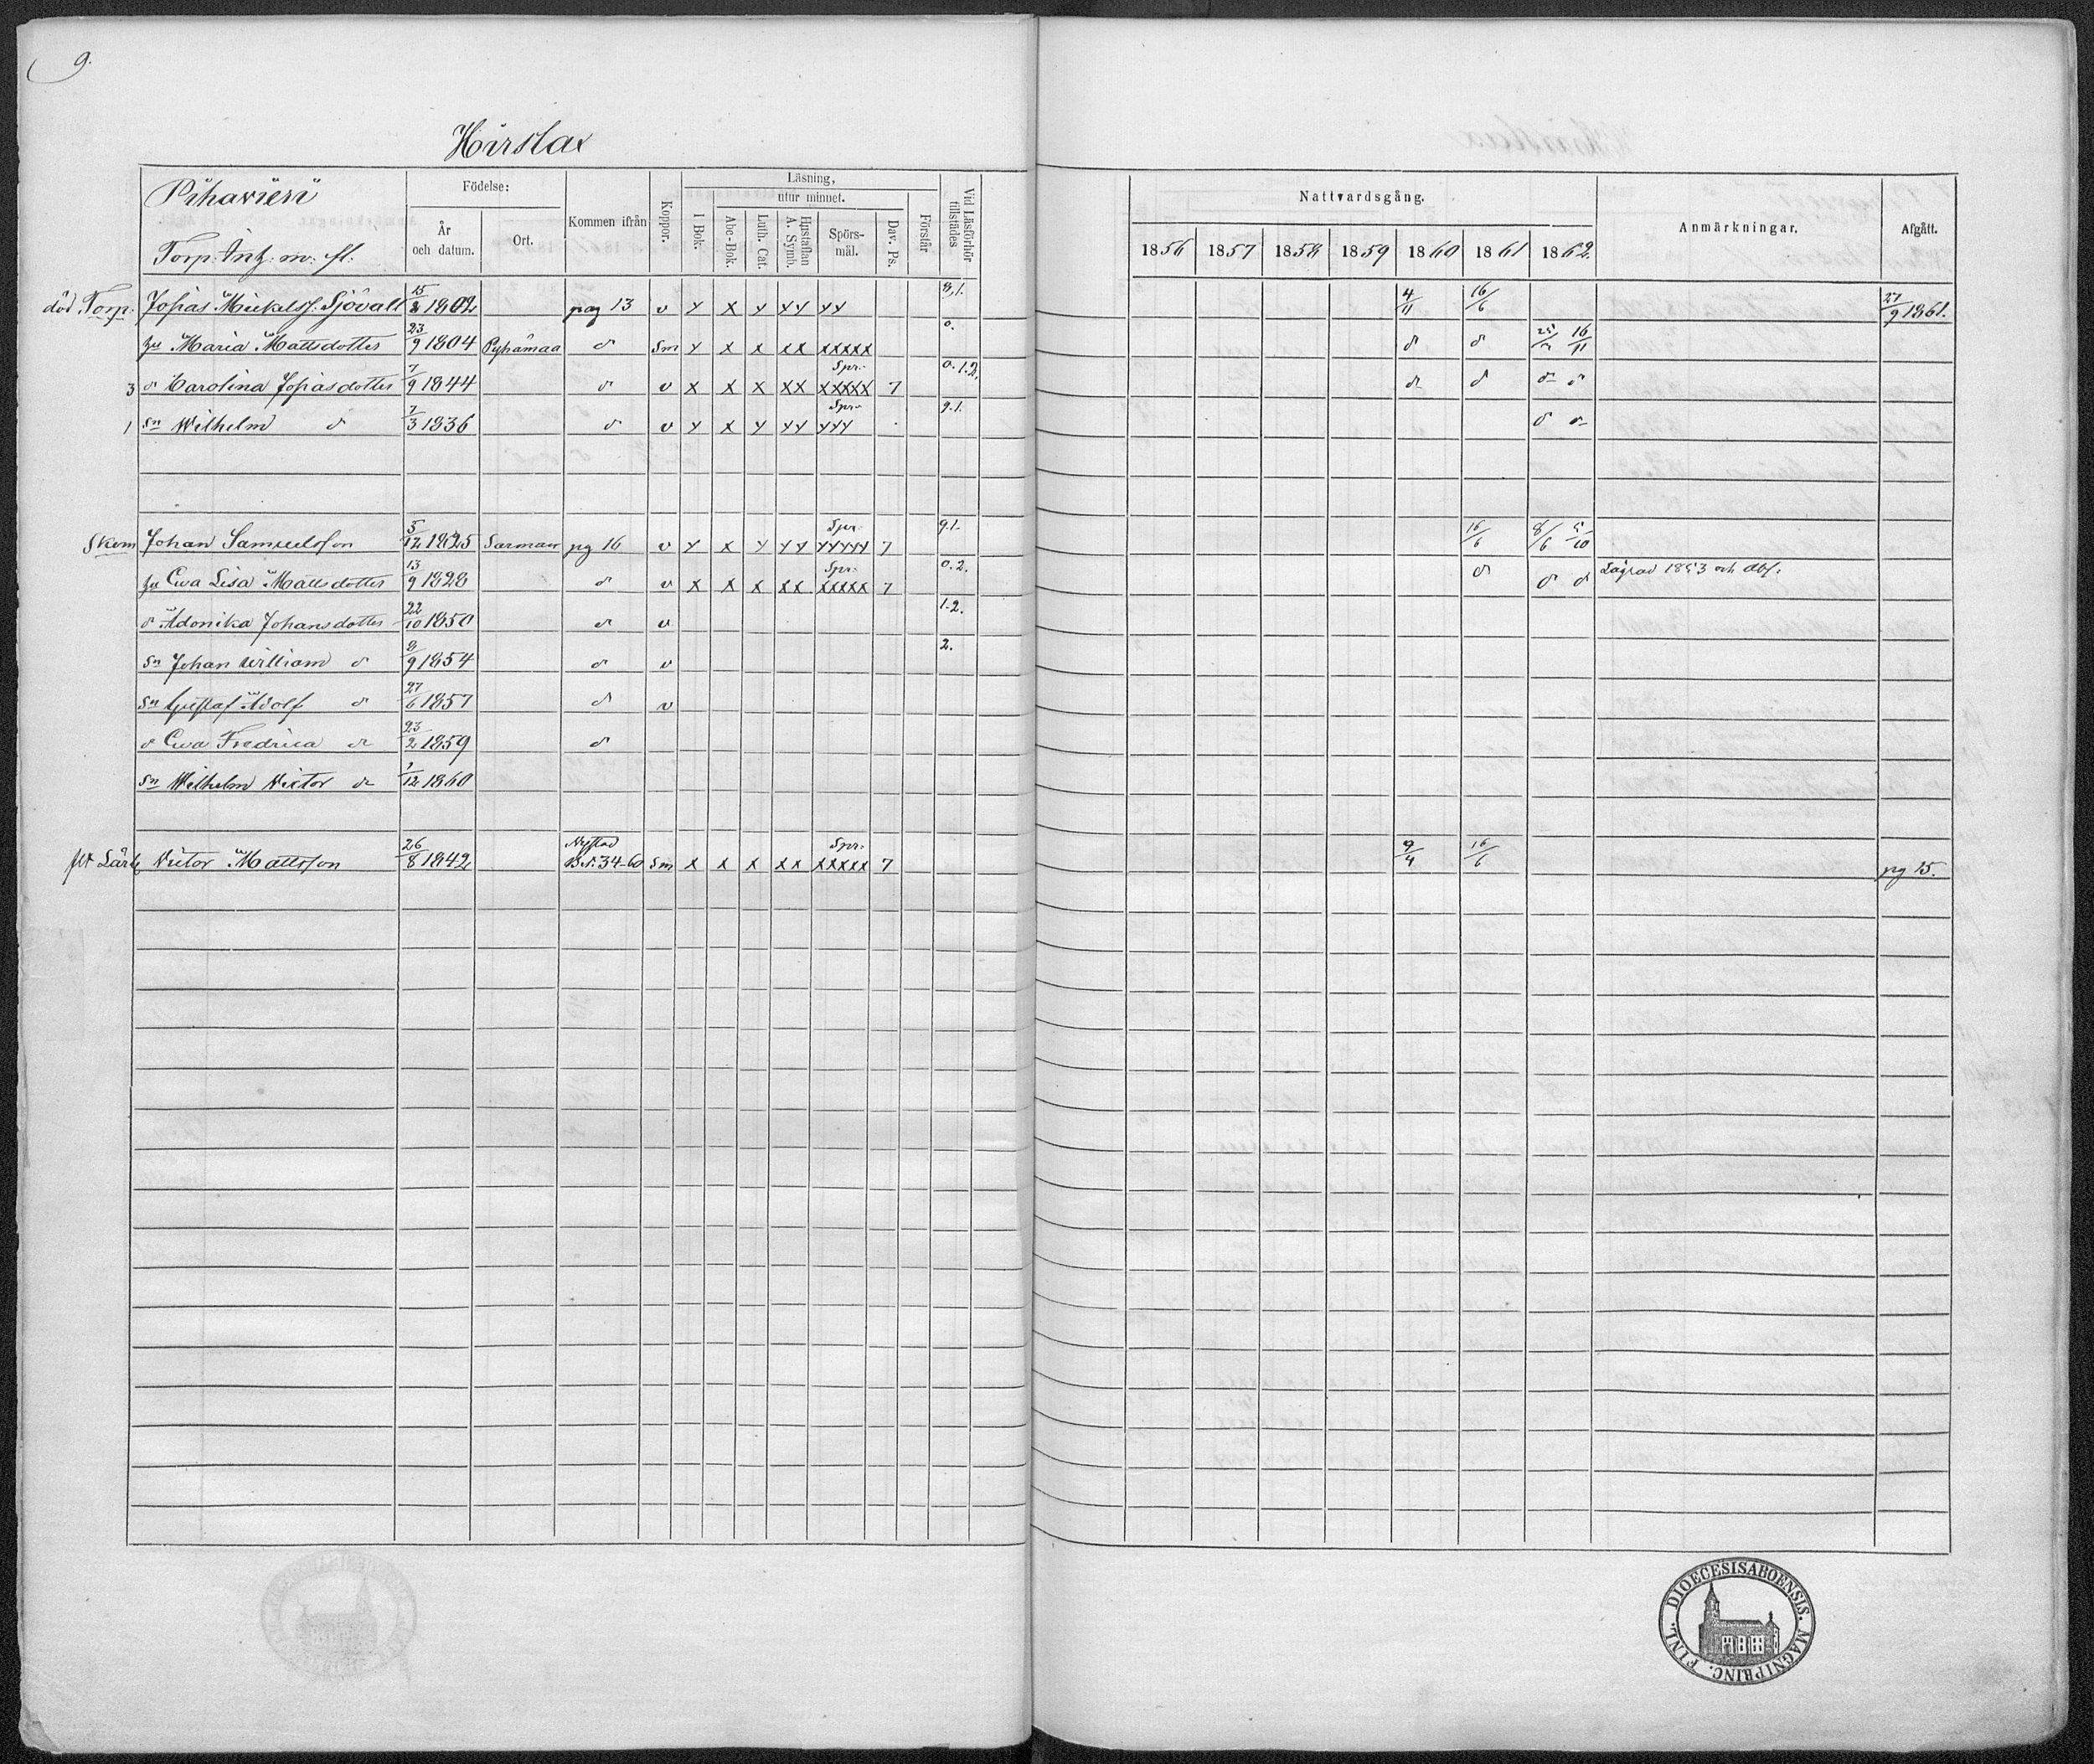 9.
Hirslax
Pihavieri
Torp. Intz: m: fl:
Födelse:
År och datum.
Ort.
Kommen ifrån
Koppor.
Läsning,
utur minnet.
I Bok.
Abc-Bok.
Luth. Cat.
Hustaflan A. Symb.
Spörs-mål.
Dav. Ps.
Förstår
Vid Läsförhör tillstädes
Nattvardsgång.
1856 1857 1858 1859 1860 1861 1862
Anmärkningar.
Afgått.
död Torp. Josias Mickelss. Sjövall 15/8 1802 pag 13 v y x y yy yy 8,1. 4/11 16/6 27/9 1861.
hu Maria Mattsdotter 23/9 1804 Pyhämaa d Sm y x x xx xxxxx 0. d d 16/11
3 d Carolina Josiasdotter 7/9 1844 d v x x x xx Spr. xxxxx 7 0.1.2. d d d d
1 sn Wilhelm d 7/3 1836 d v y x y yy Spr. yyy 9.1. d d
Skom Johan Samuelsson 5/12 1825 Sarmaa pg 16 v y x y yy Spr. yyyyy 7 9.1. 16/6 8/6 5/10
hu Ewa Lisa Mattsdotter 13/9 1828 d v x x x xx Spr. xxxxx 7 0.2. d d d Lagrad 1853 och abs.
d Adonika Johansdotter 22/10 1850 d v 1.2.
sn Johan William d 8/9 1854 d v 2.
sn Gustaf Adolf d 27/6 1857 d v
d Ewa Fredrica d 23/2 1859 d
sn Wilhelm Victor d 1/12 1860
Lärl Victor Mattsson 26/8 1842 Nystad B.N. 34-60 Sm x x x xx Spr. xxxxx 7 9/4 16/6 pg 15.
DIOECESIS ABOENSIS. MAGNI PRINC. FINL.